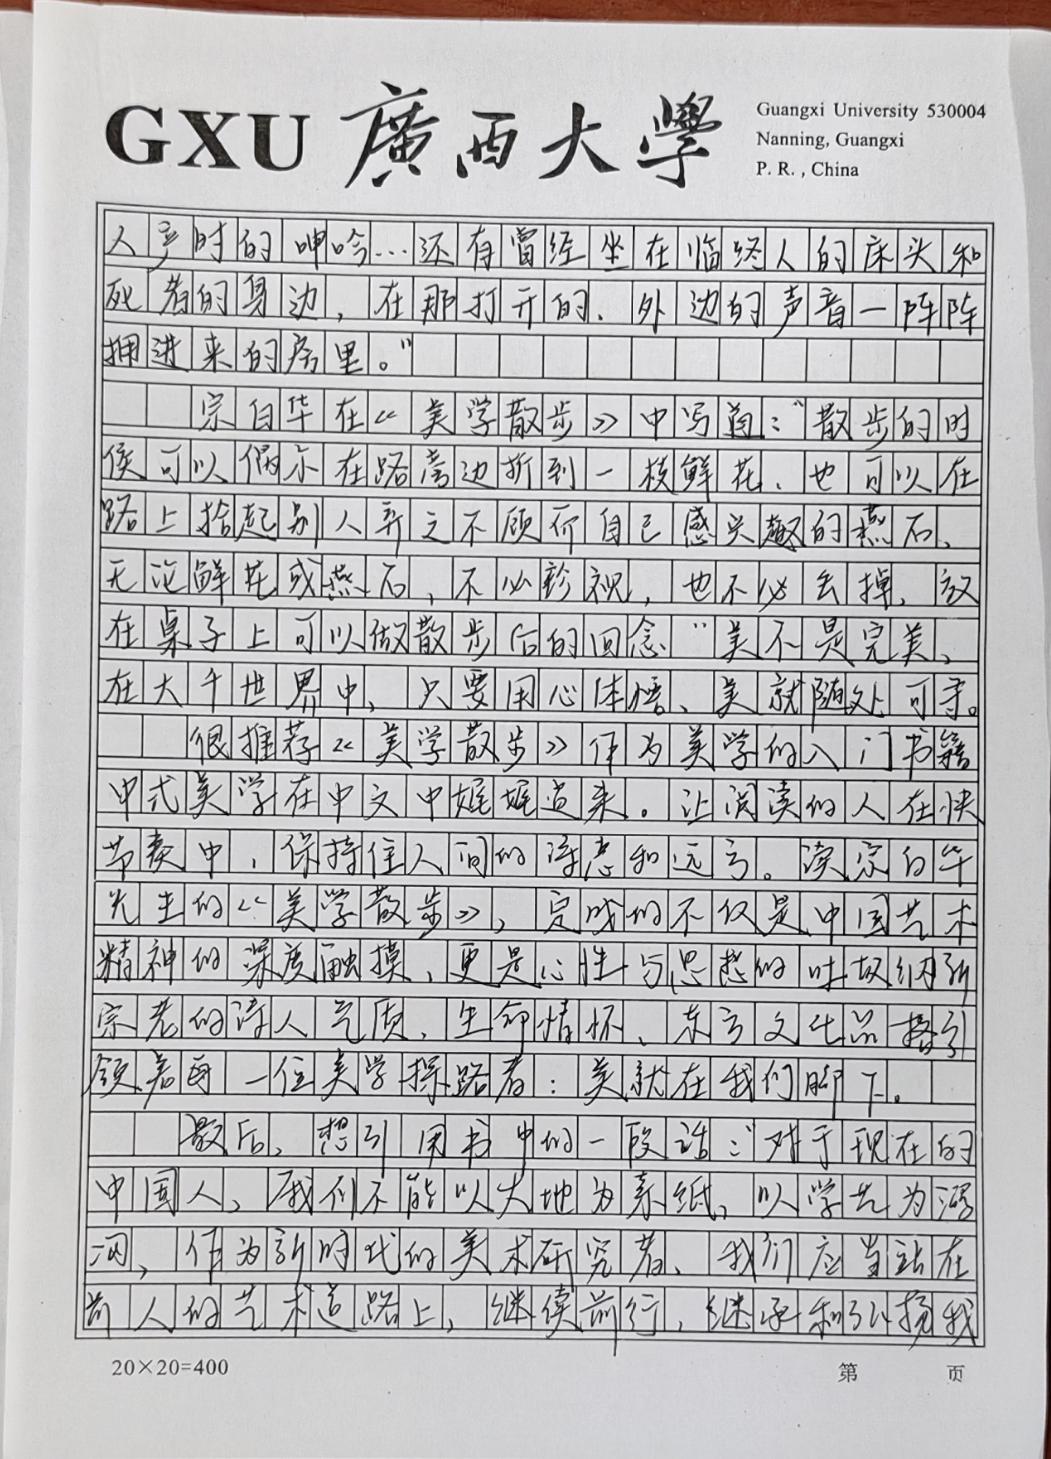 GXU 廣西大學
Guangxi University 530004
Nanning, Guangxi
P. R. , China
人产时的呻吟…还有曾经坐在临终人的床头和
死者的身边，在那打开的、外边的声音一阵阵
拥进来的房里。”
宗白华在《美学散步》中写道：“散步的时
侯可以偶尔在路旁边折到一枝鲜花、也可以在
路上拾起别人弃之不顾而自己感兴趣的燕石、
无论鲜花或燕石，不必珍视，也不必丢掉，放
在桌子上可以做散步后的回念”美不是完美、
在大千世界中、只要用心体悟、美就随处可寻。
很推荐《美学散步》作为美学的入门书籍
中式美学在中文中娓娓道来。让阅读的人在快
节奏中，保持住人间的诗意和远方。读宗白华
先生的《美学散步》，完成的不仅是中国艺术
精神的深度触摸、更是心性与思想的吐故纳新
宗老的诗人气质、生命情怀、东方文化品格引
领着每一位美学探路者：美就在我们脚下。
最后、想引用书中的一段话：“对于现在的
中国人、我们不能以大地为素纸、以学艺为
作为新时代的美术研究者、我们应当站在
前人的艺术道路上，继续前行，继承和弘扬我
20×20=400
第 页